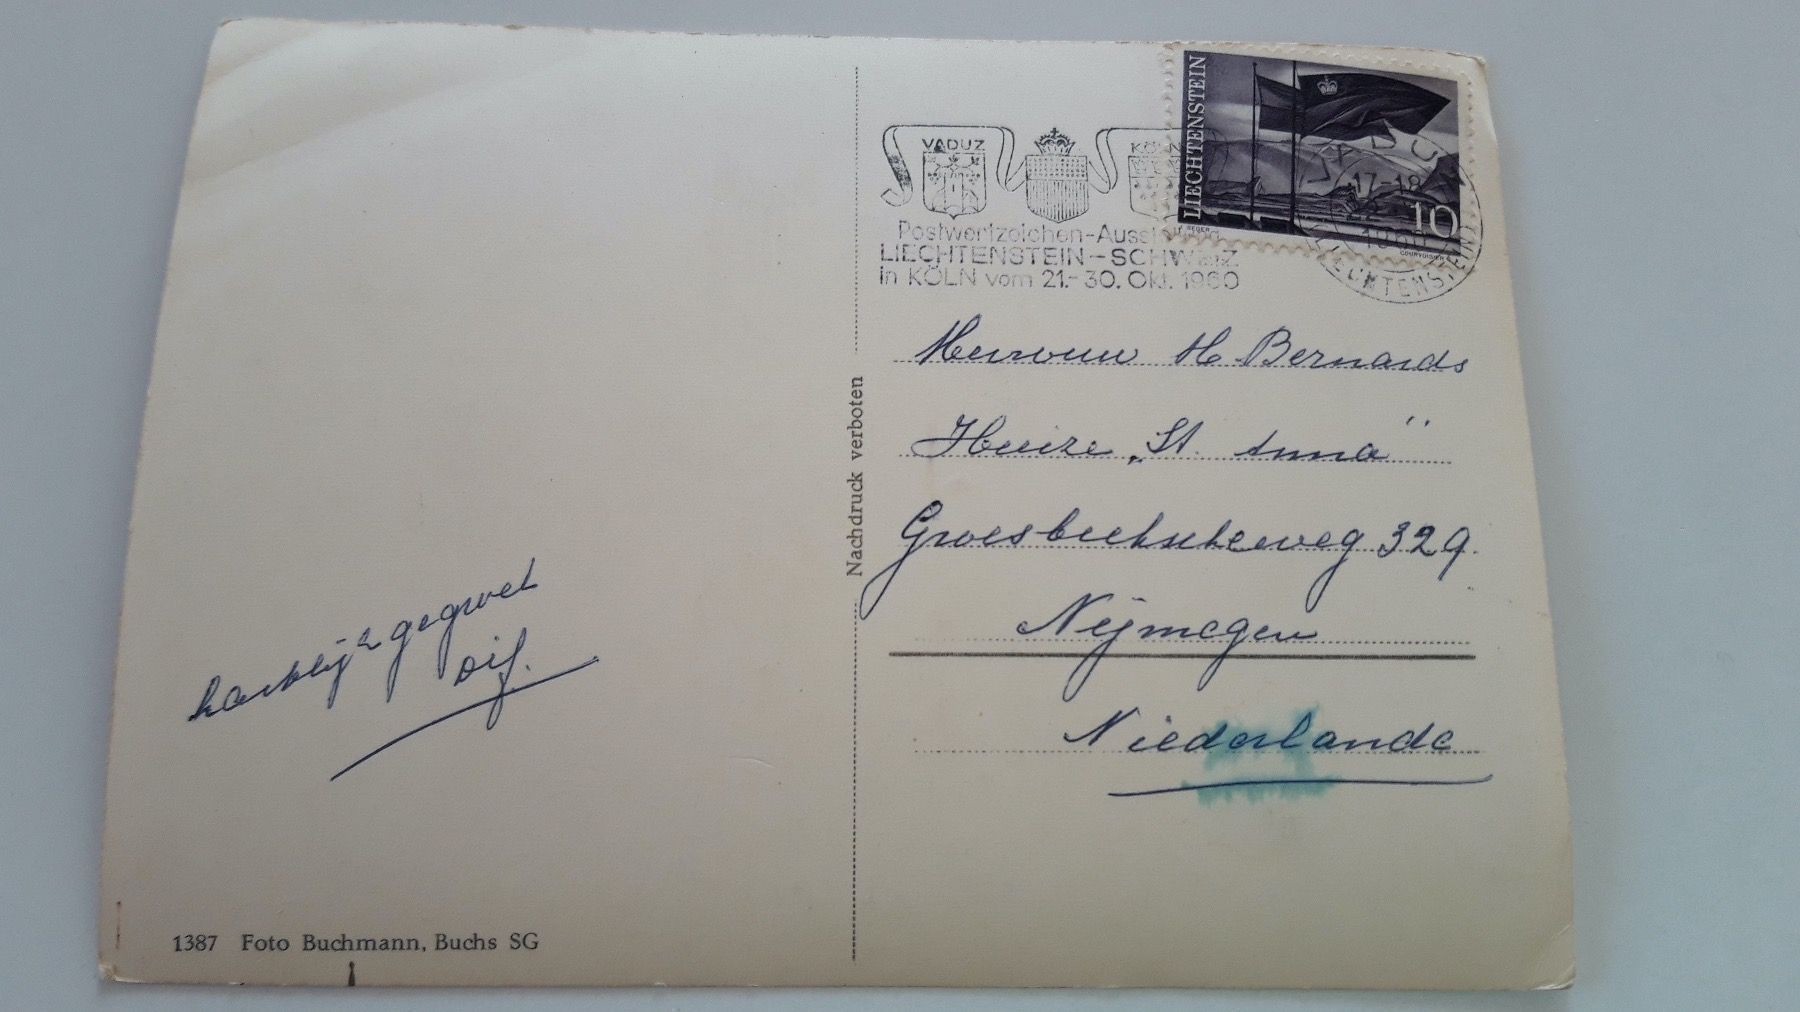 LIECHTENSTEIN
10
COURVOISIER
VADUZ
KÖLN
17-18
1960
LIECHTENSTEIN
Postwertzeichen-Ausst
LIECHTENSTEIN-SCHWEIZ
in KÖLN vom 21.-30. Okt. 1960
Mevrouw H Bernards
Huize „St. Anna"
Groesbeekscheweg 329.
Nijmegen
Niederlande
Nachdruck verboten
hartelijk gegroet
1387 Foto Buchmann, Buchs SG